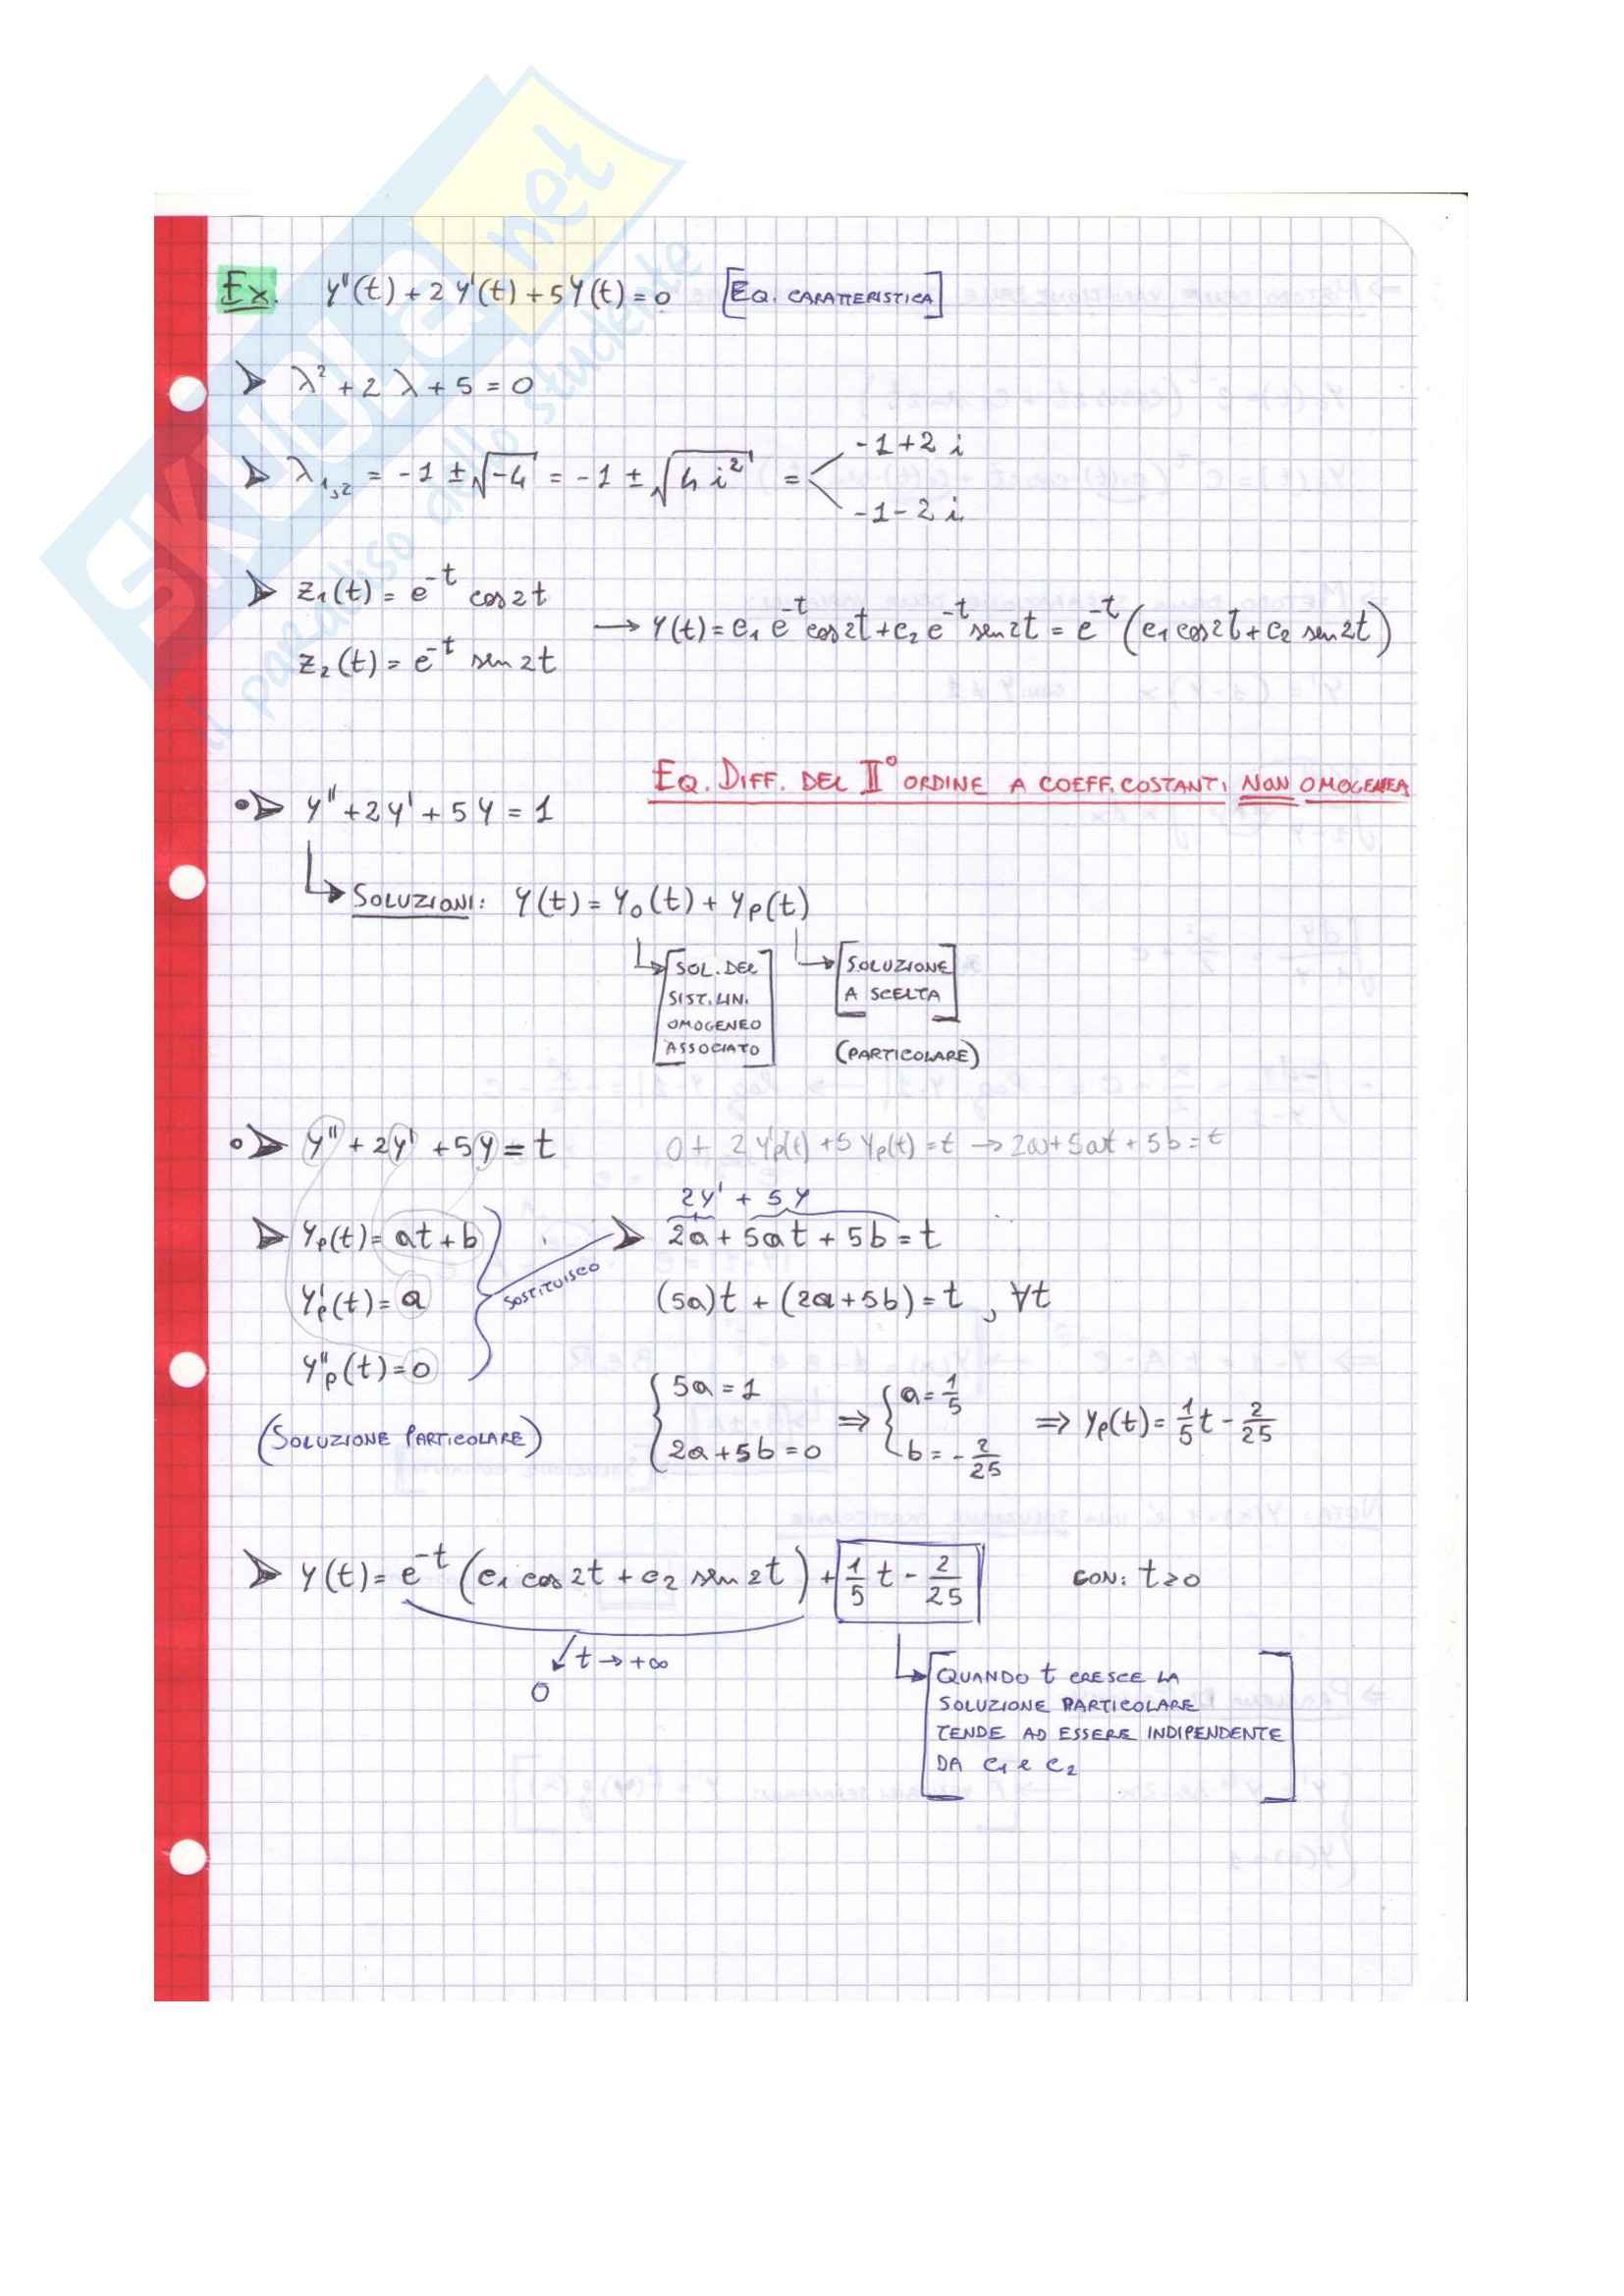 SKUOLA.net
il paradiso dello studente
Ex. y''(t) + 2 y'(t) + 5y(t) = 0 [EQ. CARATTERISTICA]
λ² + 2 λ + 5 = 0
λ₁,₂ = -1 ± √-4 = -1 ± √4 i² = < -1+2 i
-1-2 i
z₁(t) = e^-t cos 2t
z₂(t) = e^-t sen 2t
→ y(t) = c₁ e^-t cos 2t + c₂ e^-t sen 2t = e^-t (c₁ cos 2t + c₂ sen 2t)
EQ. DIFF. DEL II° ORDINE A COEFF. COSTANTI NON OMOGENEA
y'' + 2y' + 5y = 1
SOLUZIONI: y(t) = y₀(t) + yp(t)
[SOL. DEL
SIST. LIN.
OMOGENEO
ASSOCIATO]
[SOLUZIONE
A SCELTA]
(PARTICOLARE)
y'' + 2y' + 5y = t
0 + 2 y'p(t) + 5 yp(t) = t → 2a + 5at + 5b = t
yp(t) = at + b
y'p(t) = a
y''p(t) = 0
(SOLUZIONE PARTICOLARE)
SOSTITUISCO
2y' + 5y
2a + 5at + 5b = t
(5a)t + (2a+5b) = t , ∀t
{ 5a = 1
2a + 5b = 0
⇒ { a = 1/5
b = - 2/25
⇒ yp(t) = 1/5 t - 2/25
y(t) = e^-t (c₁ cos 2t + c₂ sen 2t) + 1/5 t - 2/25 CON: t≥0
t → +∞
0
[QUANDO t CRESCE LA
SOLUZIONE PARTICOLARE
TENDE AD ESSERE INDIPENDENTE
DA c₁ e c₂]